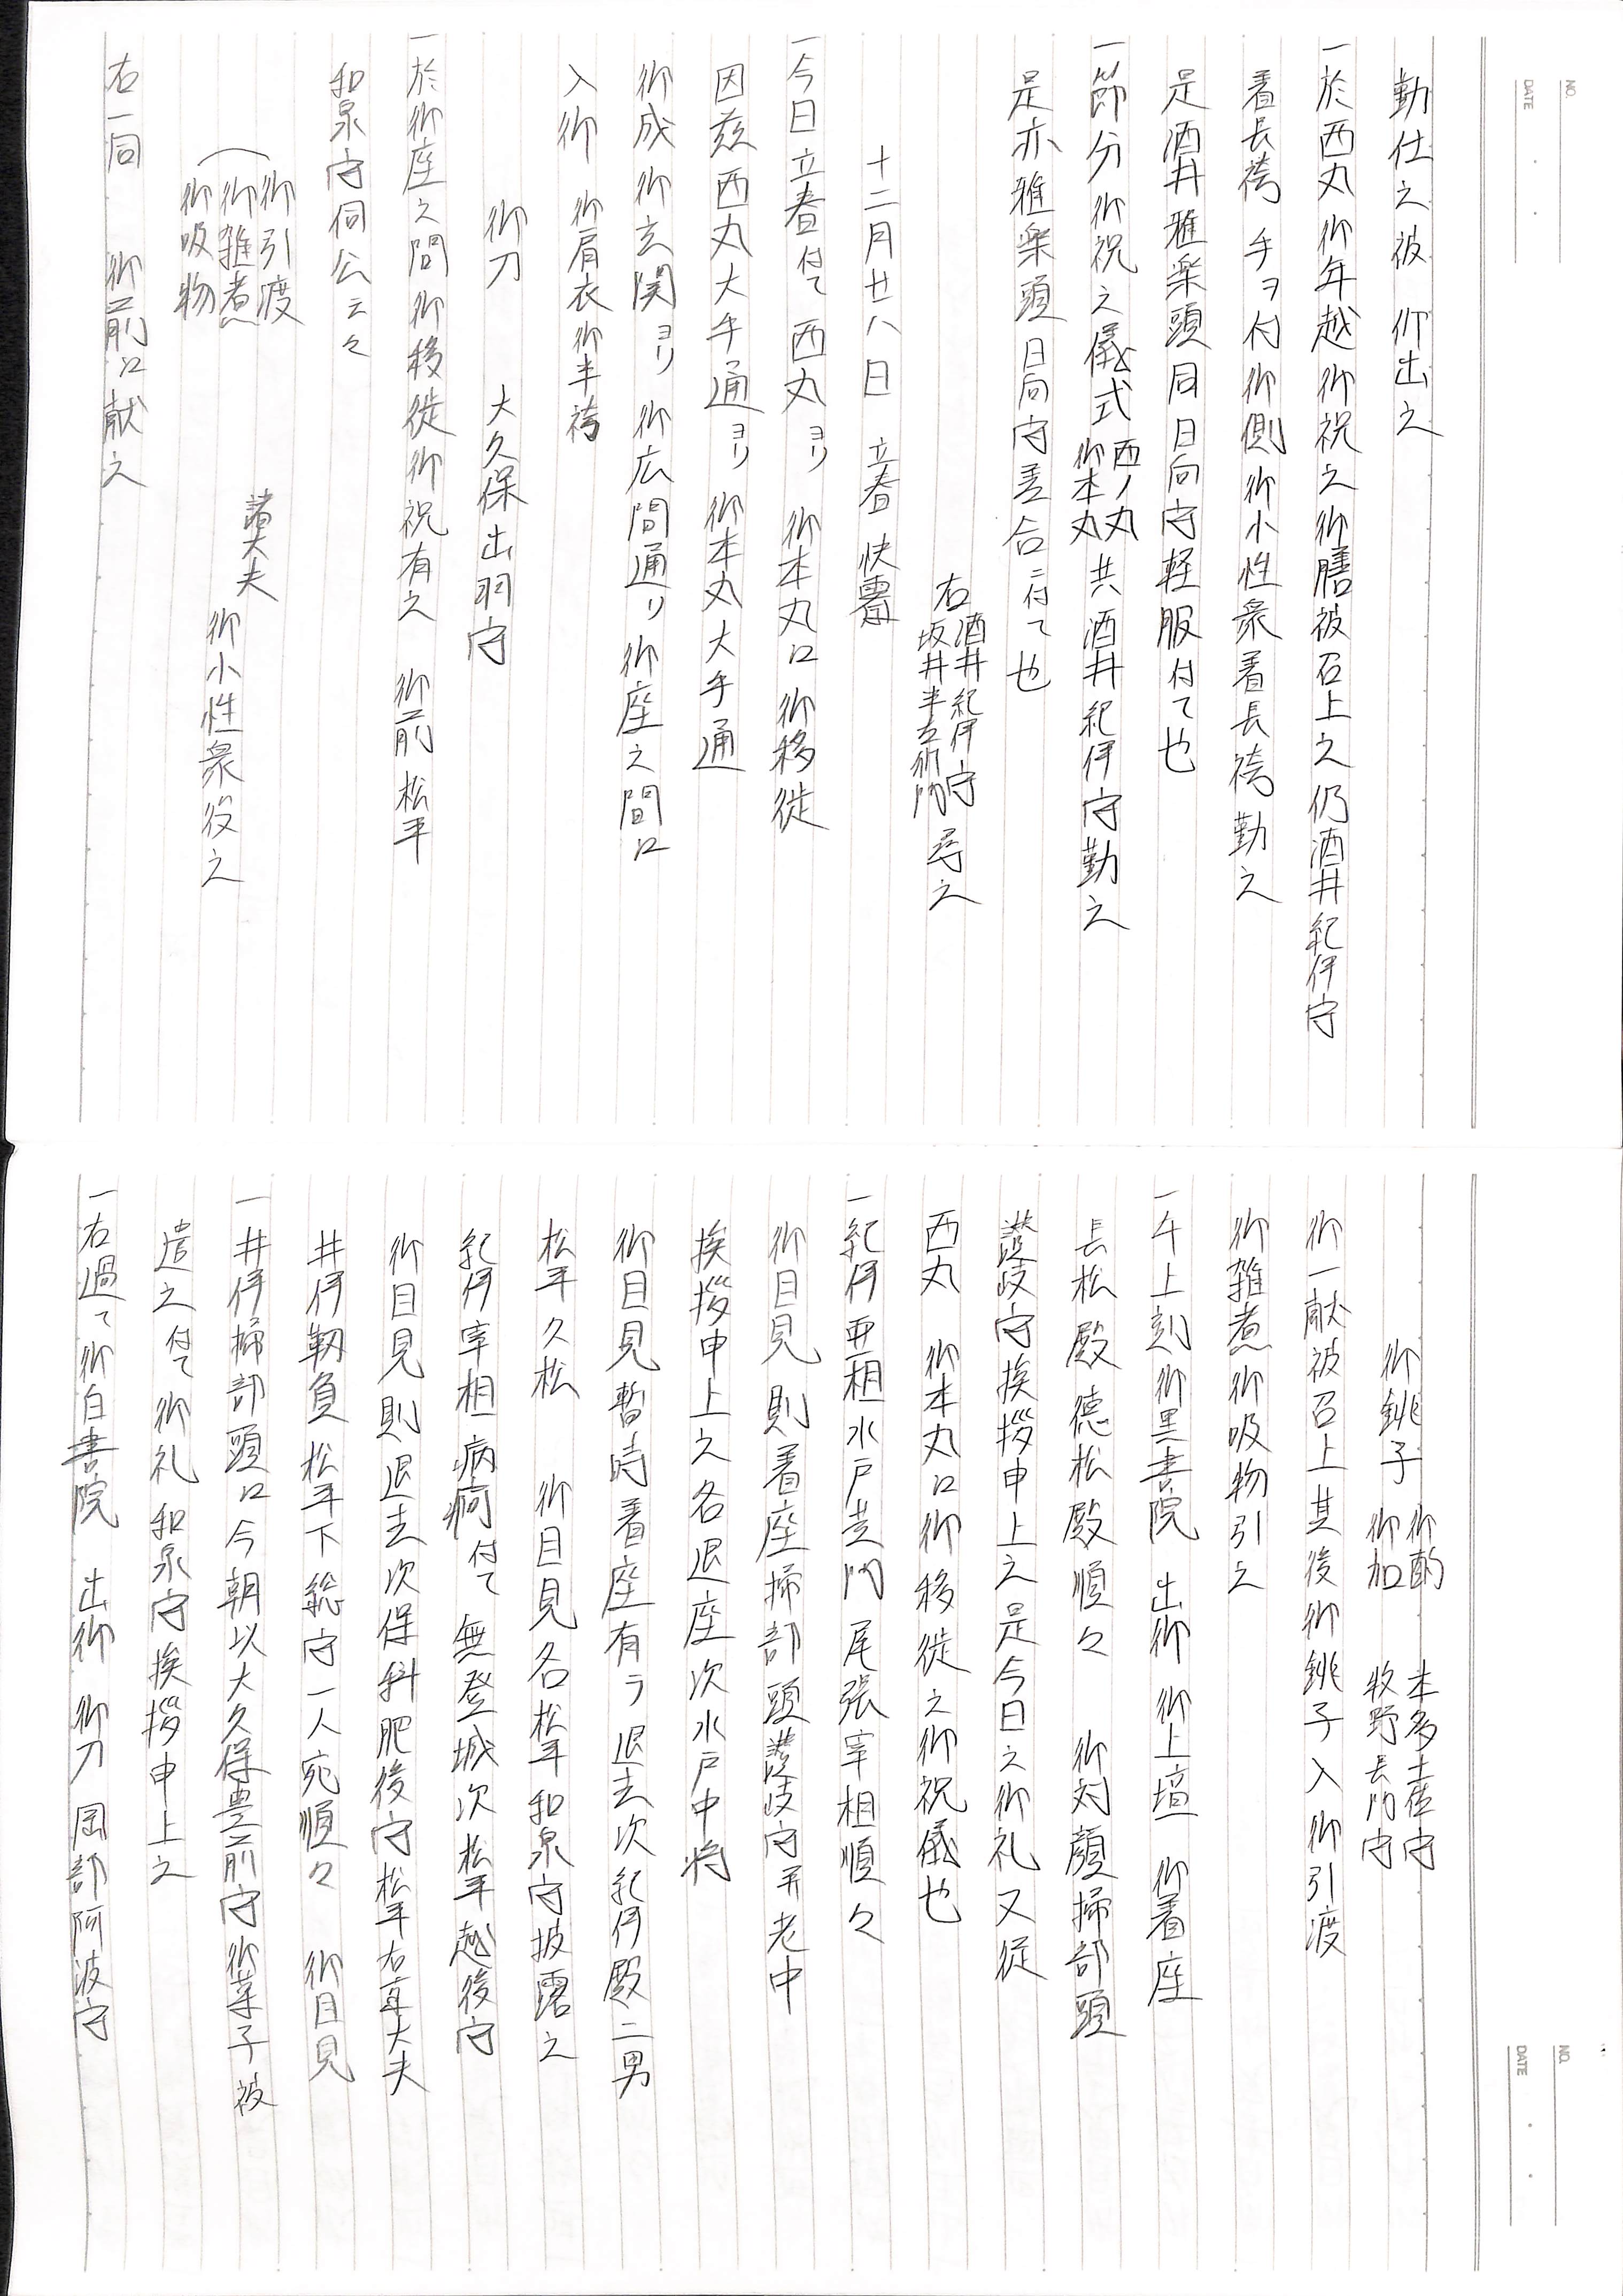 NO.
DATE
勤仕之被 仰出之
一於西丸御年越御祝之御膳被召上之仍酒井紀伊守
着長袴 手ヲ付御側御小性衆着長袴勤之
是酒井雅楽頭同日向守軽服付て也
一節分御祝之儀式 西ノ丸 御本丸 共酒井紀伊守勤之
是亦雅楽頭日向守差合ニ付て也
右 酒井紀伊守 坂井半左衛門 尋之
十二月廿八日 立春 快霽
一今日立春付て 西丸ヨリ 御本丸江御移徙
因茲西丸大手通ヨリ 御本丸大手通
御成御玄関ヨリ 御広間通リ御座之間江
入御 御肩衣御半袴
御刀 大久保出羽守
一於御座之間御移徙御祝有之 御前松平
和泉守伺公云々
御引渡
御雑煮
御吸物
諸大夫
御小性衆役之
右一同 御前江献之
NO.
DATE
御銚子 御酌 本多土佐守
御加 牧野長門守
御一献被召上其後御銚子入御引渡
御雑煮御吸物引之
一午上刻御黒書院 出御 御上壇 御着座
長松殿徳松殿順々 御対顔掃部頭
讃岐守挨拶申上之是今日之御礼又従
西丸 御本丸江御移徙之御祝儀也
一紀伊亜相水戸黄門尾張宰相順々
御目見則着座掃部頭讃岐守并老中
挨拶申上之各退座次水戸中将
御目見暫時着座有テ退去次紀伊殿二男
松平久松 御目見各松平和泉守披露之
紀伊宰相病痾付て無登城次松平越後守
御目見則退去次保科肥後守松平右京大夫
井伊靱負松平下総守一人宛順々 御目見
一井伊掃部頭江今朝以大久保豊前守御菓子被
遣之付て御礼和泉守挨拶申上之
一右過て御白書院 出御 御刀 岡部阿波守